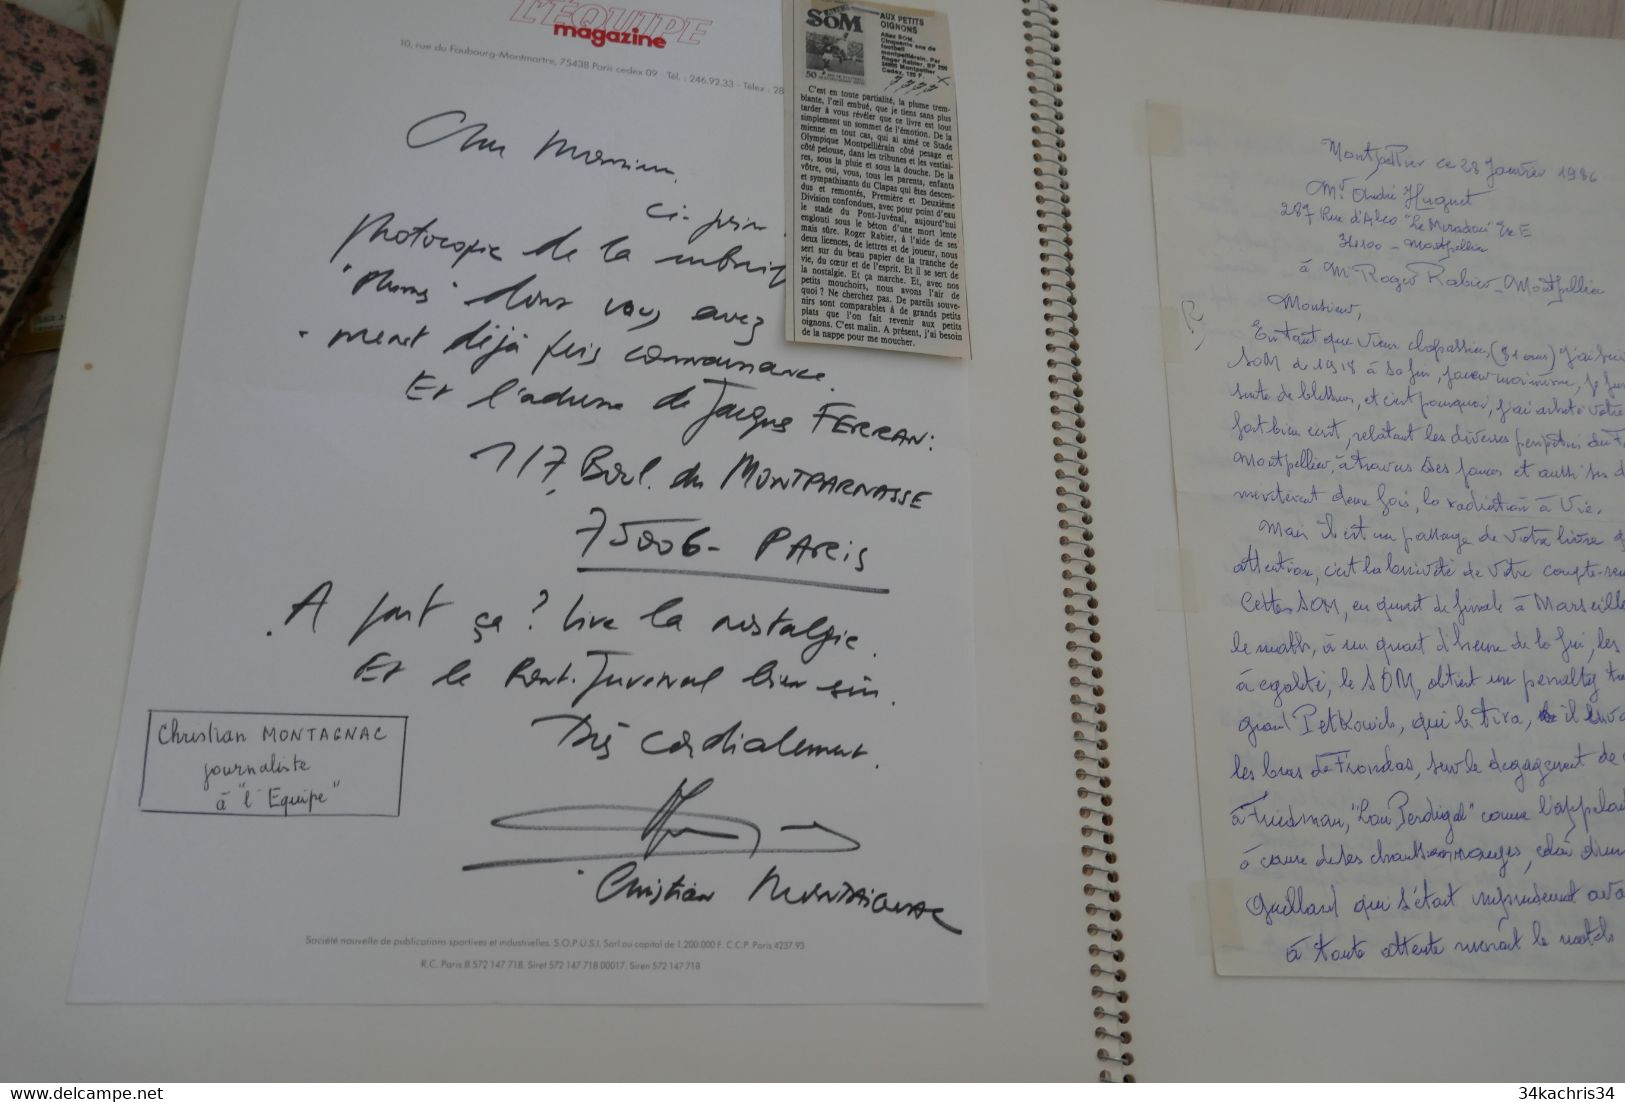 L'ÉQUIPE
magazine
10, rue du Faubourg-Montmartre, 75438 Paris cedex 09 - Tél. : 246.92.33 - Télex : 28
Cher Monsieur,
ci-join
photocopie de la rubriq
"Plumes" dont vous avez
ment déjà pris connaissance.
Et l'adresse de Jacques FERRAN:
117, Boul. du MONTPARNASSE
75006 - PARIS
A part ça? Vive la nostalgie.
Et le Pont-Juvénal bien sûr.
Très cordialement.
Christian MONTAIGNAC
Christian MONTAGNAC
journaliste
à "l'Equipe"
Société nouvelle de publications sportives et industrielles. S.O.P.U.S.I. Sarl au capital de 1.200.000 F. C.C.P. Paris 4237.93
R.C. Paris B 572 147 718. Siret 572 147 718 00017. Siren 572 147 718
SOM
50
AUX PETITS
OIGNONS
Allez SOM.
Cinquante ans de
football
montpelliérain. Par
Roger Rabier, BP
Montpellier
Cedex. 120 F.
C'est en toute partialité, la plume trem-
blante, l'œil embué, que je tiens sans plus
tarder à vous révéler que ce livre est tout
simplement un sommet de l'émotion. De la
mienne en tout cas, qui ai aimé ce Stade
Olympique Montpelliérain côté pesage et
côté pelouse, dans les tribunes et les vestiai-
res, sous la pluie et sous la douche. De la
vôtre, oui, vous, tous les parents, enfants
et sympathisants du Clapas qui êtes descen-
dus et remontés, Première et Deuxième
Division confondues, avec pour point d'eau
le stade du Pont-Juvénal, aujourd'hui
englouti sous le béton d'une mort lente
mais sûre. Roger Rabier, à l'aide de ses
deux licences, de lettres et de joueur, nous
sert sur du beau papier de la tranche de
vie, du cœur et de l'esprit. Et il se sert de
la nostalgie. Et ça marche. Et, avec nos
petits mouchoirs, nous avons l'air de
quoi ? Ne cherchez pas. De pareils souve-
nirs sont comparables à de grands petits
plats que l'on fait revenir aux petits
oignons. C'est malin. A présent, j'ai besoin
de la nappe pour me moucher.
Montpellier ce 28 Janvier 1986
Mr André Huguet
287 Rue d'Alco "Le Miradou" E
34100 - Montpellier
à Mr Roger Rabier - Montpellier
Monsieur,
En tant que vieux clapassien (81 ans) j'ai
SOM de 1918 à sa fin, joueur moi-même, je
suite de blessures, et c'est pourquoi, j'ai acheté votre
fort bien écrit, relatant les diverses péripéties du
Montpellier, à travers ses joueurs et aussi
méritèrent deux fois, la radiation à Vie.
Mais il est un passage de votre livre
attention, c'est la brièveté de votre compte-ren
Cette-SOM, en quart de finale à Marseille
le match, à un quart d'heure de la fin, les
à égalité, le SOM, obtient un penalty
grand Petkovich, qui le tira, il
les bras de Frondas, sur le dégagement de
à Friedman, "Lou Perdigal" comme l'appelai
à cause de ses chaussettes rouges, celui
Guillard qui s'était imprudemment ava
à toute attente le match
34kachris34
delcampe.net